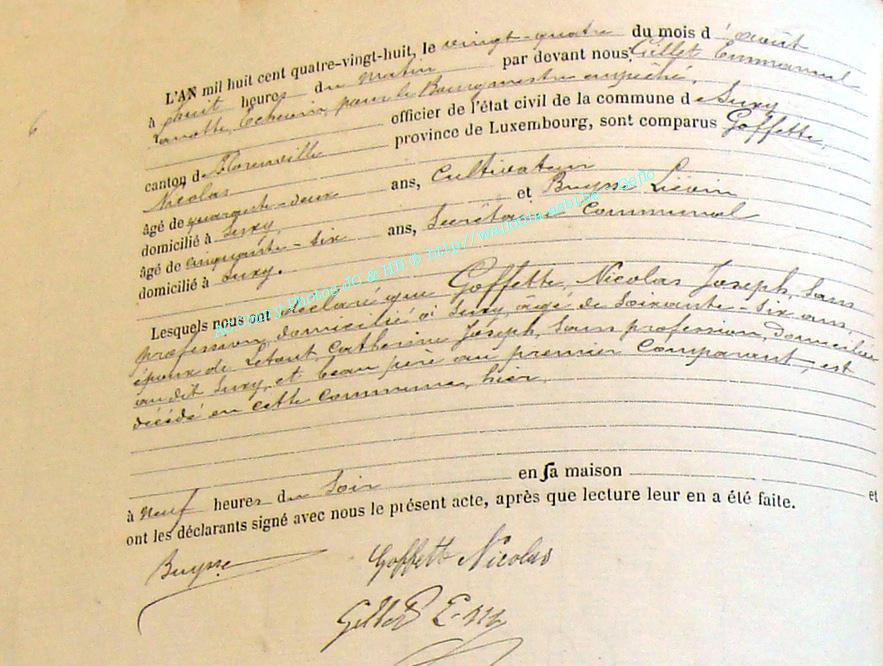 L'AN mil huit cent quatre-vingt-huit, le vingt-quatre du mois d'août
à huit heures du matin par devant nous Gillet Emmanuel
Echevin, pour le Bourgmestre empêché,
officier de l'état civil de la commune de Suxy
canton de Florenville province de Luxembourg, sont comparus Goffette,
Nicolas
âgé de quarante-deux ans, Cultivateur
domicilié à Suxy et Buysse Liévin
âgé de cinquante-six ans, Secrétaire Communal
domicilié à Suxy.
Lesquels nous ont déclaré que Goffette, Nicolas Joseph, sans
profession, domicilié à Suxy, âgé de soixante-six ans,
époux de Catherine Joseph, sans profession, domiciliée
au dit Suxy, et beau père au premier Comparant, est
décédé en cette commune, hier,
à neuf heures du soir en sa maison et
ont les déclarants signé avec nous le présent acte, après que lecture leur en a été faite.
Buysse Goffette Nicolas
Gillet Em